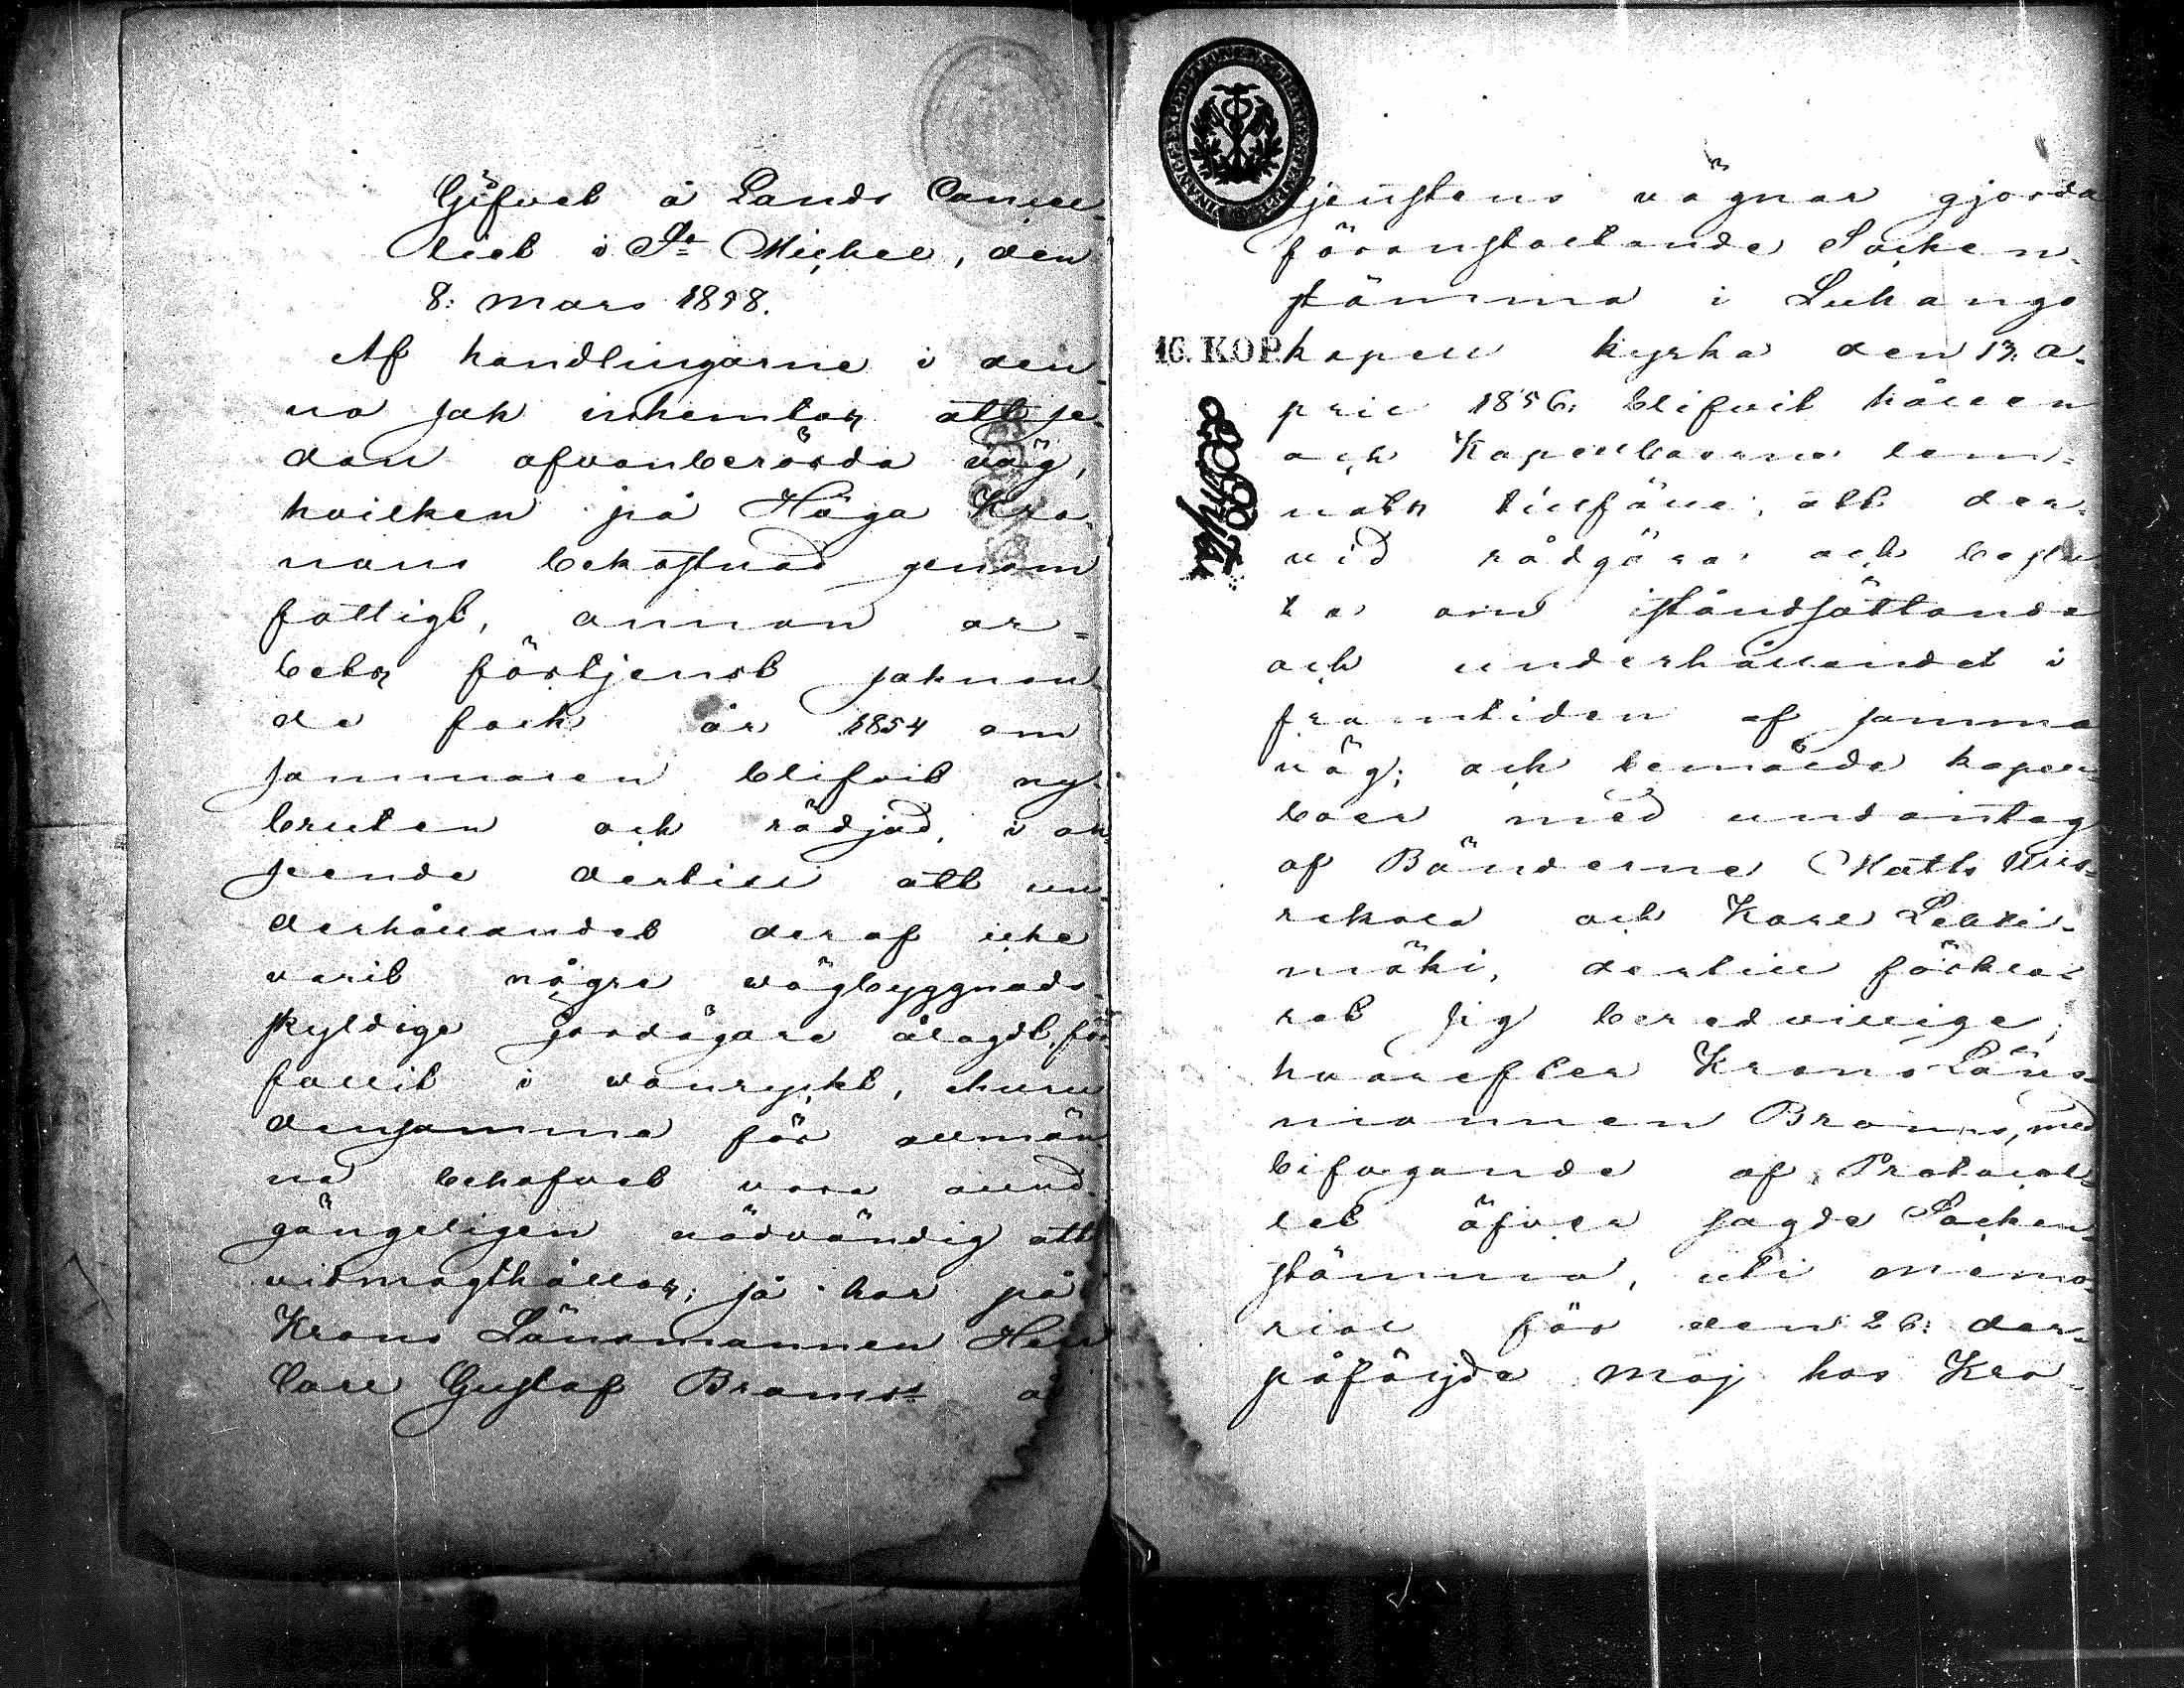 Gifvet å Lands Cancel-
liet i St Michel, den
8: Mars 1858.
Af handlingarne i den-
na sak inhemtas att se-
dan ofvanberörda väg,
hvilken på Höga Kro-
nans bekostnad genom
fattigt, annan ar-
bets förtjenst saknan-
de folk år 1854 om
sommaren blifvit ny-
bruten och rödjad, i an
seende dertill att un-
derhållandet deraf icke
varit några vägbyggnads-
skyldige jordägare ålagdt, för-
fallit i vanryckt, ehuru
densamma för allmän
na behofvet vore ound-
gängeligen nödvändig att
vidmagthållas; så har på
Krono Länsmannen Herr
Carl Gustaf Brams
tjenstens vägnar gjorda
föranstaltande Socken-
stämma i Luhango
16. KOP. kapell kyrka den 13. A-
pril 1856. blifvit hållen
och Kapellboerne lem-
nats tillfälle, att der-
vid rådgöra och beslu
ta om iståndsättande
och underhållandet i
framtiden af samma
väg; och bemälde kapell-
boer med undantag
af Bönderne Matts Uus-
rekola och Karl Lehti-
mäki, dertill förkla-
rat sig beredvillige;
hvarefter Krono Läns-
mannen Brams, med
bifogande af Protocol-
let öfver sagde Socken
stämma, uti memo-
rial för den 26: der-
påföljde Maj hos Kro-